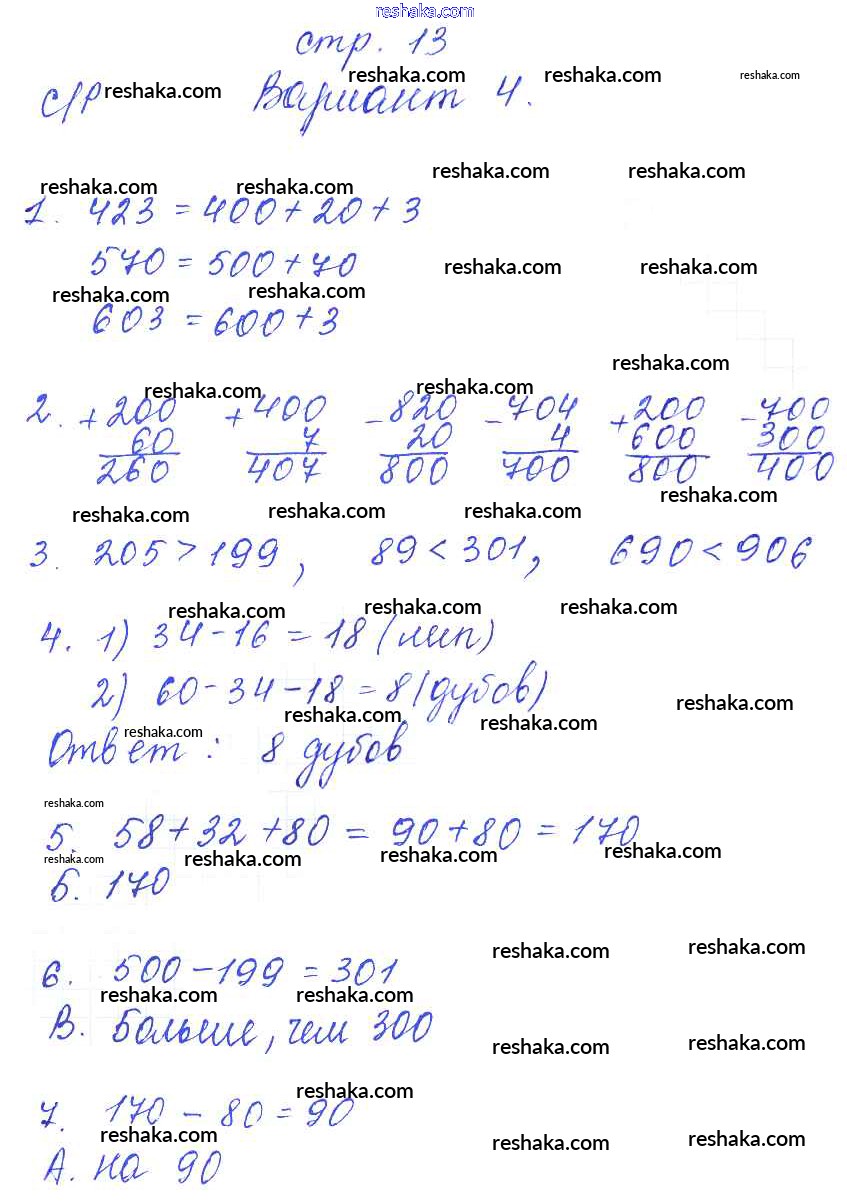 reshaka.com
стр. 13
с/р Вариант 4.
reshaka.com reshaka.com reshaka.com reshaka.com
reshaka.com reshaka.com reshaka.com reshaka.com
1. 423 = 400 + 20 + 3
570 = 500 + 70
reshaka.com reshaka.com reshaka.com reshaka.com
603 = 600 + 3
reshaka.com
reshaka.com reshaka.com
2. + 200 + 400 - 820 - 704 + 200 - 700
60 7 20 4 600 300
260 407 800 700 800 400
reshaka.com
reshaka.com reshaka.com reshaka.com
3. 205 > 199, 89 < 301, 690 < 906
reshaka.com reshaka.com reshaka.com
4. 1) 34 - 16 = 18 (лип)
2) 60 - 34 - 18 = 8 (дубов)
reshaka.com reshaka.com reshaka.com reshaka.com
Ответ: 8 дубов
reshaka.com
5. 58 + 32 + 80 = 90 + 80 = 170
reshaka.com reshaka.com reshaka.com reshaka.com
Б. 170
reshaka.com reshaka.com
6. 500 - 199 = 301
reshaka.com reshaka.com
В. Больше, чем 300
reshaka.com reshaka.com
reshaka.com
7. 170 - 80 = 90
reshaka.com reshaka.com reshaka.com
А. на 90